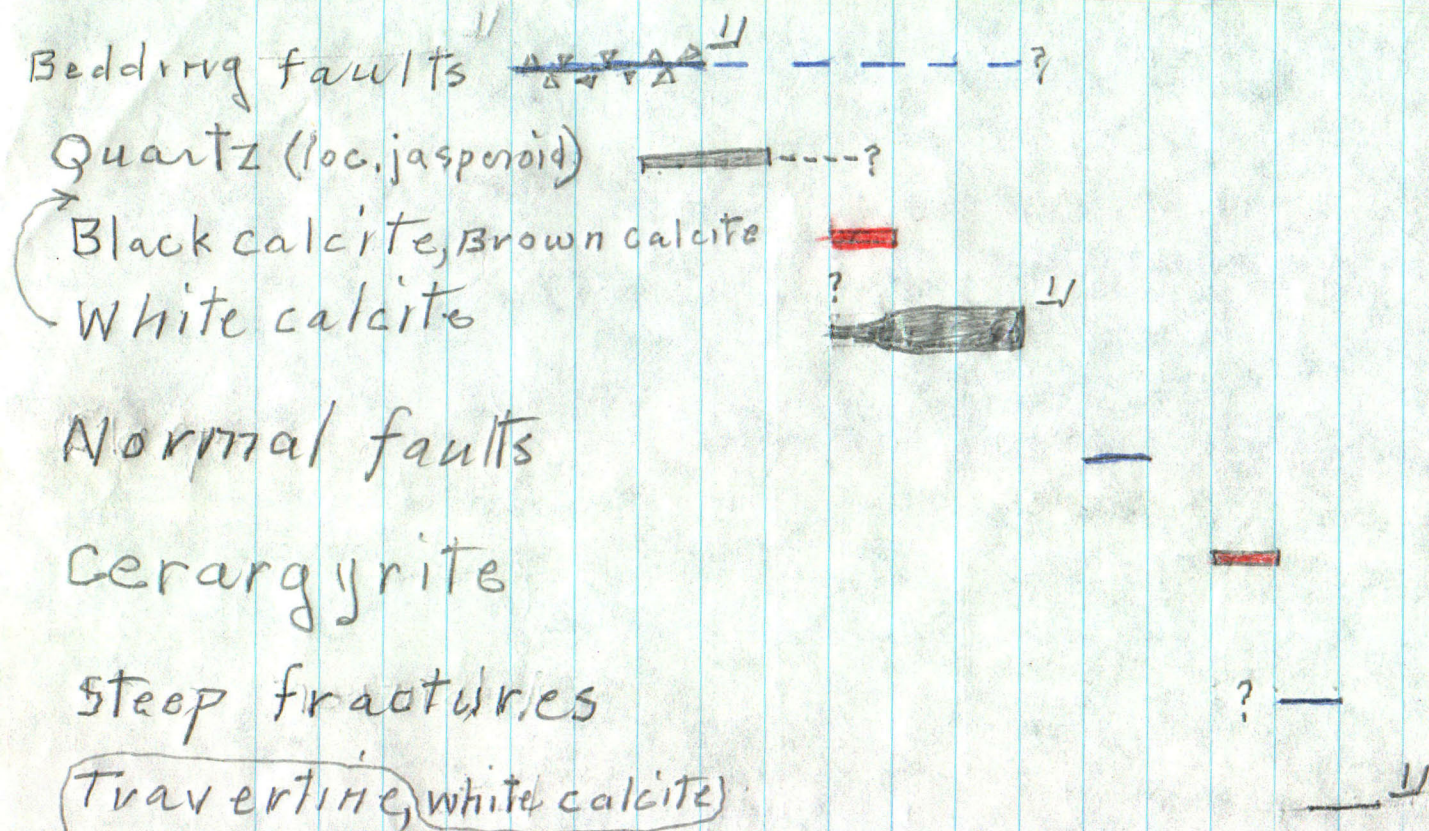 Bedding faults 1/ ?
Quartz (loc. jasperoid) ?
Black calcite, Brown calcite
?
White calcite 1/
Normal faults
Cerargyrite
Steep fractures ?
Travertine, white calcite 1/